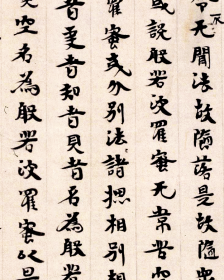 令不无聞法故隨落是故隨
或說般若波羅蜜无常苦空
羅蜜或分別法諸揔相別相
者更者知者見者名為般若
空名為般若波羅蜜以是